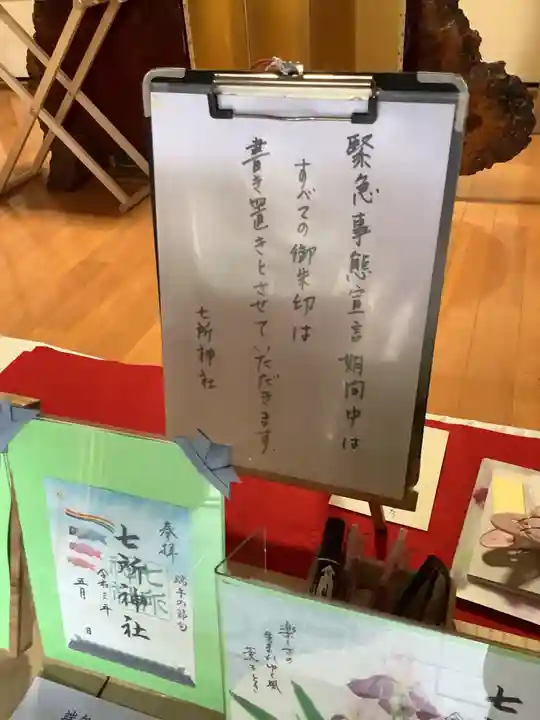 緊急事態宣言期間中は
すべての御朱印は
書き置きとさせていただきます。
七所神社
奉拝
端午の節句
七所神社
令和三年
五月 日
七